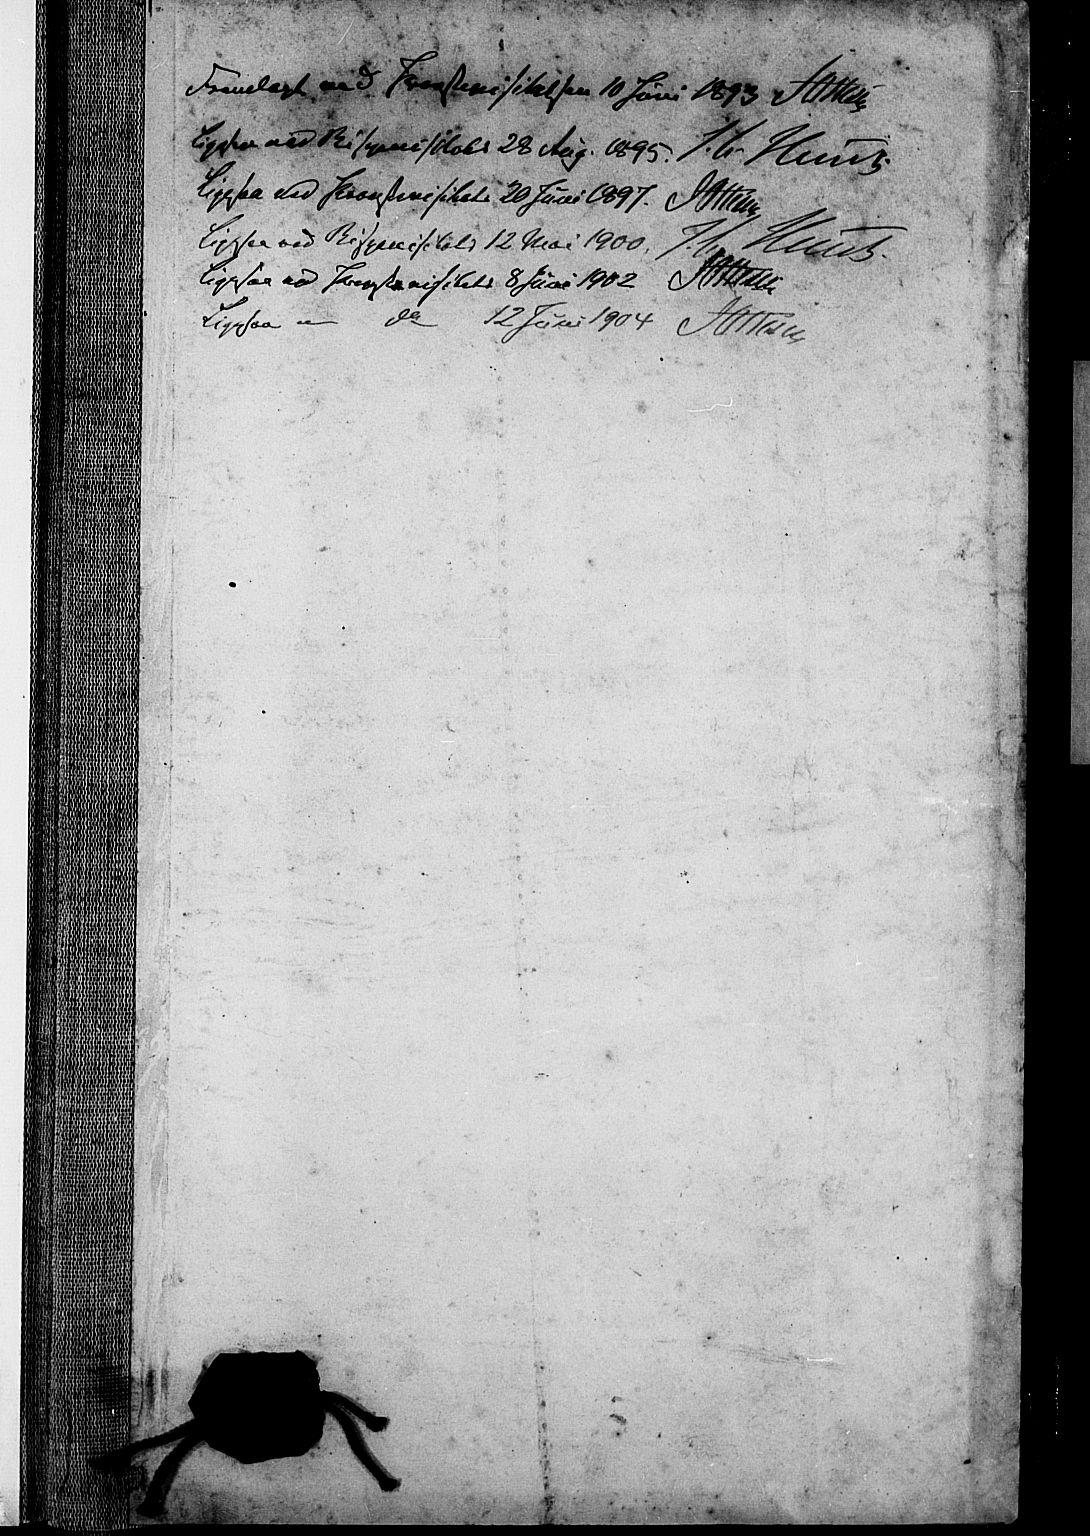 Fremlagt ved Provstevisitatsen 10 Juni 1893
Ligesaa ved Bispevisitats 28 Aug. 1895.
Ligesaa ved Provstevisitats 20 Juni 1897.
Ligesaa ved Bispevisitats 12 Mai 1900.
Ligesaa ved Provstevisitats 8 Juni 1902
Ligesaa — do 12 Juni 1904